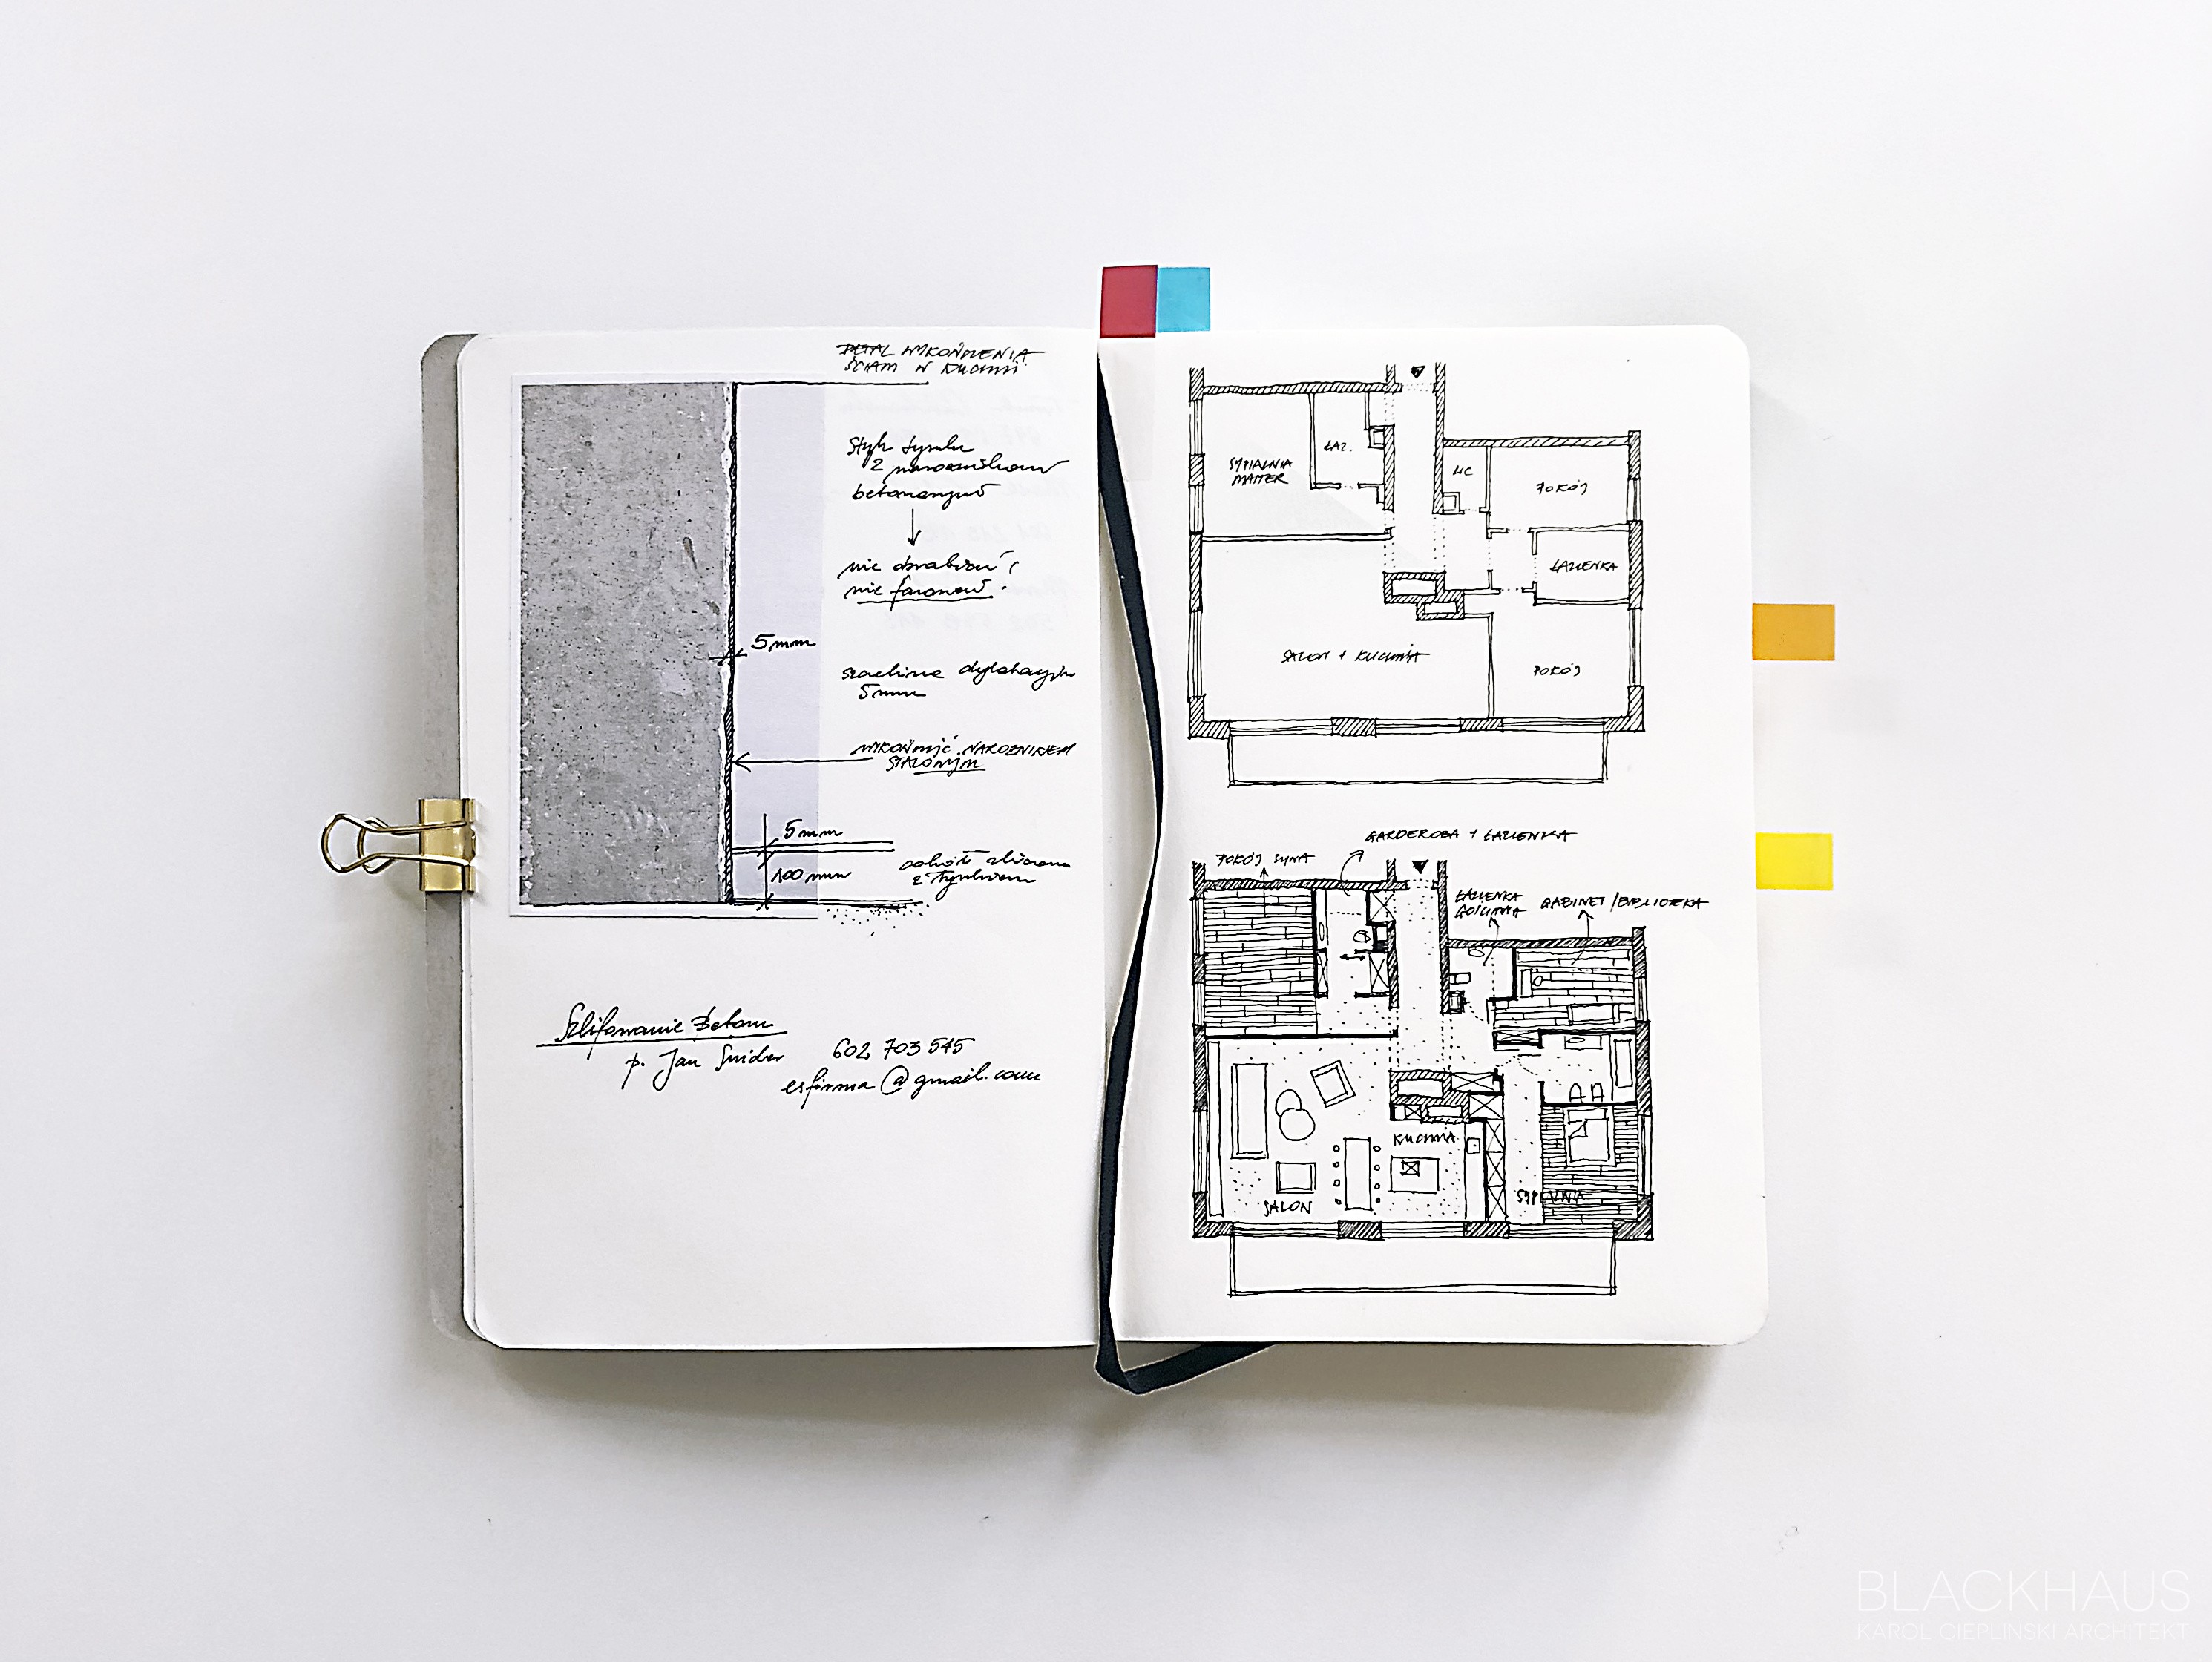 DETAL WYKOŃCZENIA
ŚCIAN W KUCHNI
Styk tynku
z narożnikow
betonowym
nie obrabiać,
nie fazować.
5 mm
szczelina dylatacyjna
5 mm
WYKOŃCZYĆ NAROŻNIKIEM
STALOWYM
5 mm
100 mm
cokół zlicowany
z tynkiem
Szlifowanie betonu
p. Jan Snider
602 703 545
esfirma@gmail.com
SYPIALNIA
MASTER
ŁAZ.
WC
POKÓJ
ŁAZIENKA
SALON + KUCHNIA
POKÓJ
GARDEROBA + ŁAZIENKA
POKÓJ SYNA
ŁAZIENKA
GOŚCINNA
GABINET/BIBLIOTEKA
KUCHNIA
SALON
SYPIALNIA
BLACKHAUS
KAROL CIEPLIŃSKI ARCHITEKT